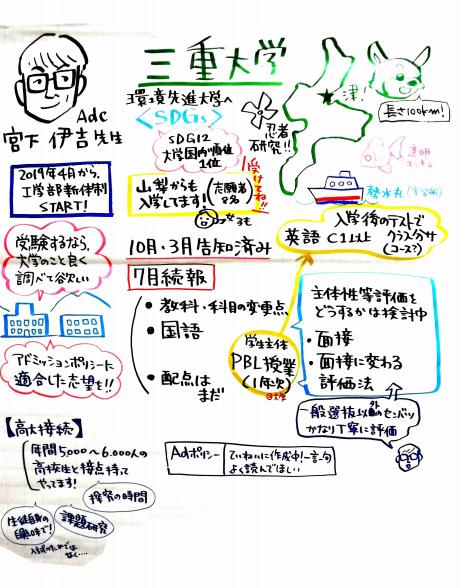 三重大学
Adc
宮下 伊吉先生
環境先進大学へ
<SDGs>
SDG12
大学国内順位
1位
忍者
研究!!
津!
長さ100km!
透明
勢水丸(実習船)
2019年4月から、
工学部新体制
START!
山梨からも
入学してます!
(志願者
8名)
受けてね!!
なるも
受験するなら、
大学のこと良く
調べて欲しい
10月・3月告知済み
7月続報
・教科・科目の変更点
・国語
・配点は
まだ
入学後のテストで
英語 C1以上 クラス分け
(コース?)
学生主体
PBL授業
(1年次)
@大学
主体性等評価を
どうするかは検討中
・面接
・面接に変わる
評価法
一般選抜以外のセンバツ
かなり丁寧に評価
アドミッションポリシーに
適合した志望を!!
【高大接続】
年間5000~6,000人の
高校生と接点持って
やってます!
探究の時間
生徒自身の
興味で!
課題研究
入試のためでは
なく…
Adポリシー
ていねいに作成中!一言一句
よく読んでほしい